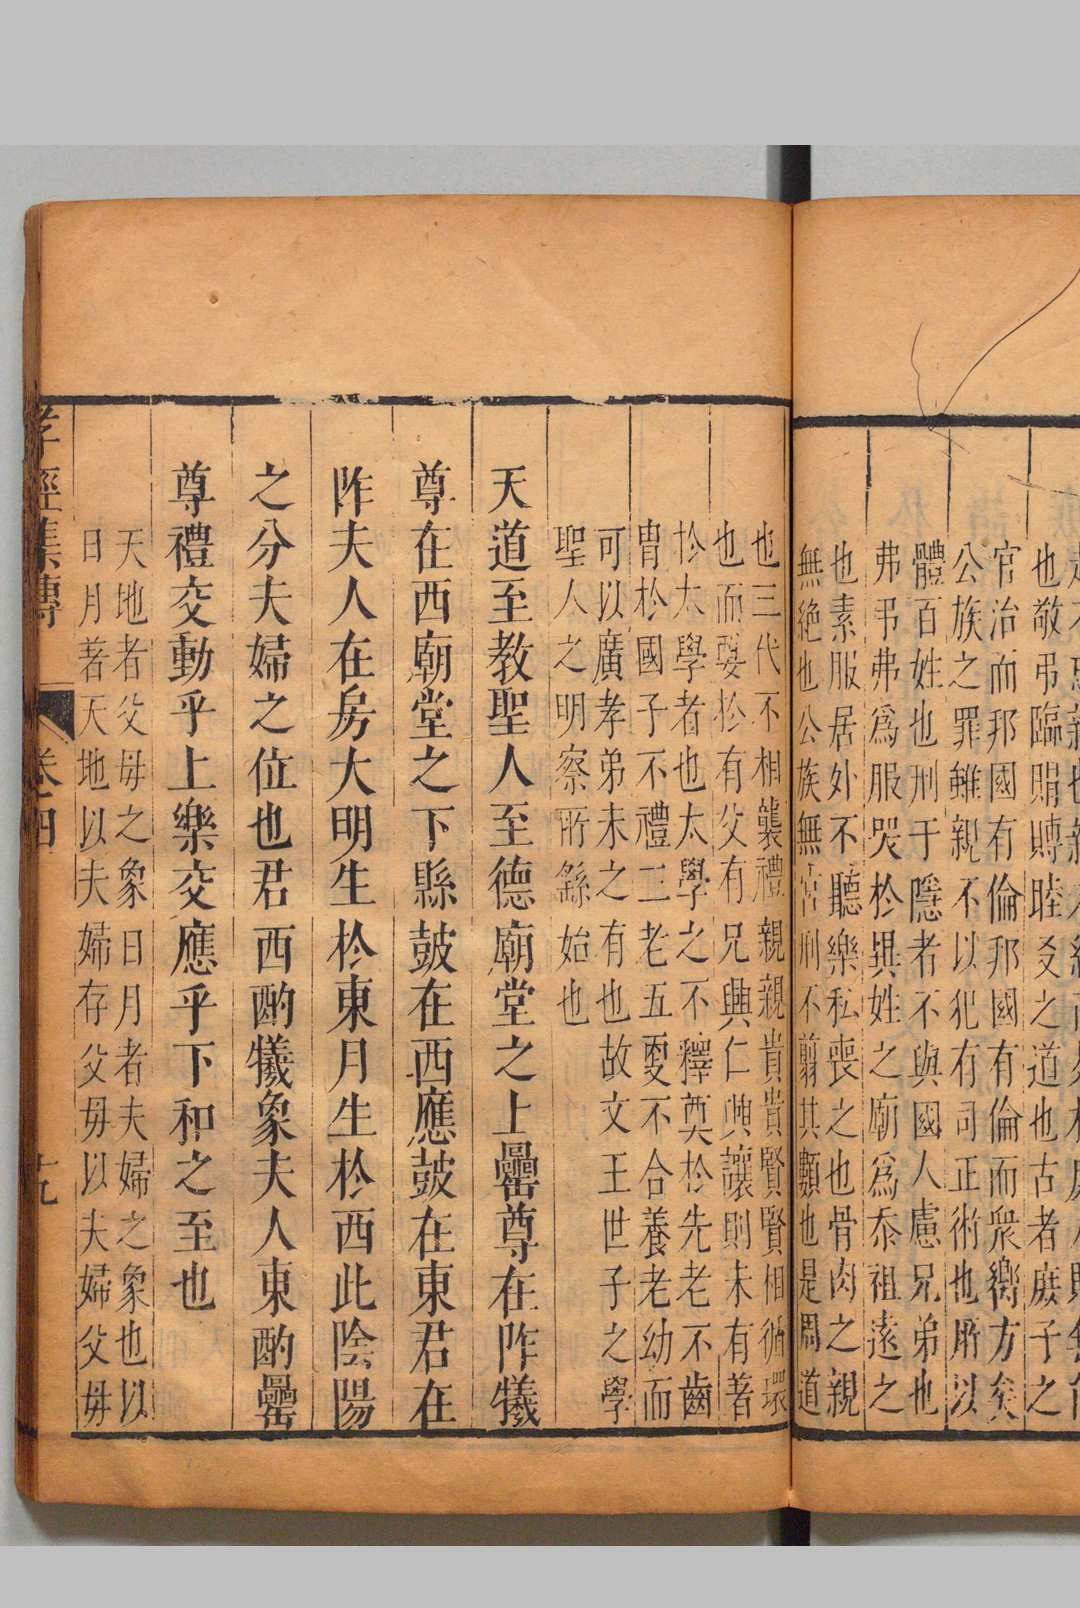 也敬弔臨賵賻睦友之道也古者庶子之
官治而邦國有倫邦國有倫而衆嚮方矣
公族之罪雖親不以犯有司正術也所以
體百姓也刑于隱者不與國人慮兄弟也
弗弔弗爲服哭於異姓之廟爲忝祖遠之
也素服居外不聽樂私喪之也骨肉之親
無絕也公族無宮刑不翦其類也是周道
也三代不相襲禮親親貴貴賢賢相循環
也而要於有父有兄興仁興讓則未有著
於太學者也太學之不釋奠於先老不齒
胄於國子不禮三老五更不合養老幼而
可以廣孝弟未之有也故文王世子之學
聖人之明察所繇始也
天道至教聖人至德廟堂之上罍尊在阼犧
尊在西廟堂之下縣鼓在西應鼓在東君在
阼夫人在房大明生於東月生於西此陰陽
之分夫婦之位也君西酌犧象夫人東酌罍
尊禮交動乎上樂交應乎下和之至也
天地者父母之象日月者夫婦之象也以
日月著天地以夫婦存父母以夫婦父母
孝經集傳 卷四 廿九